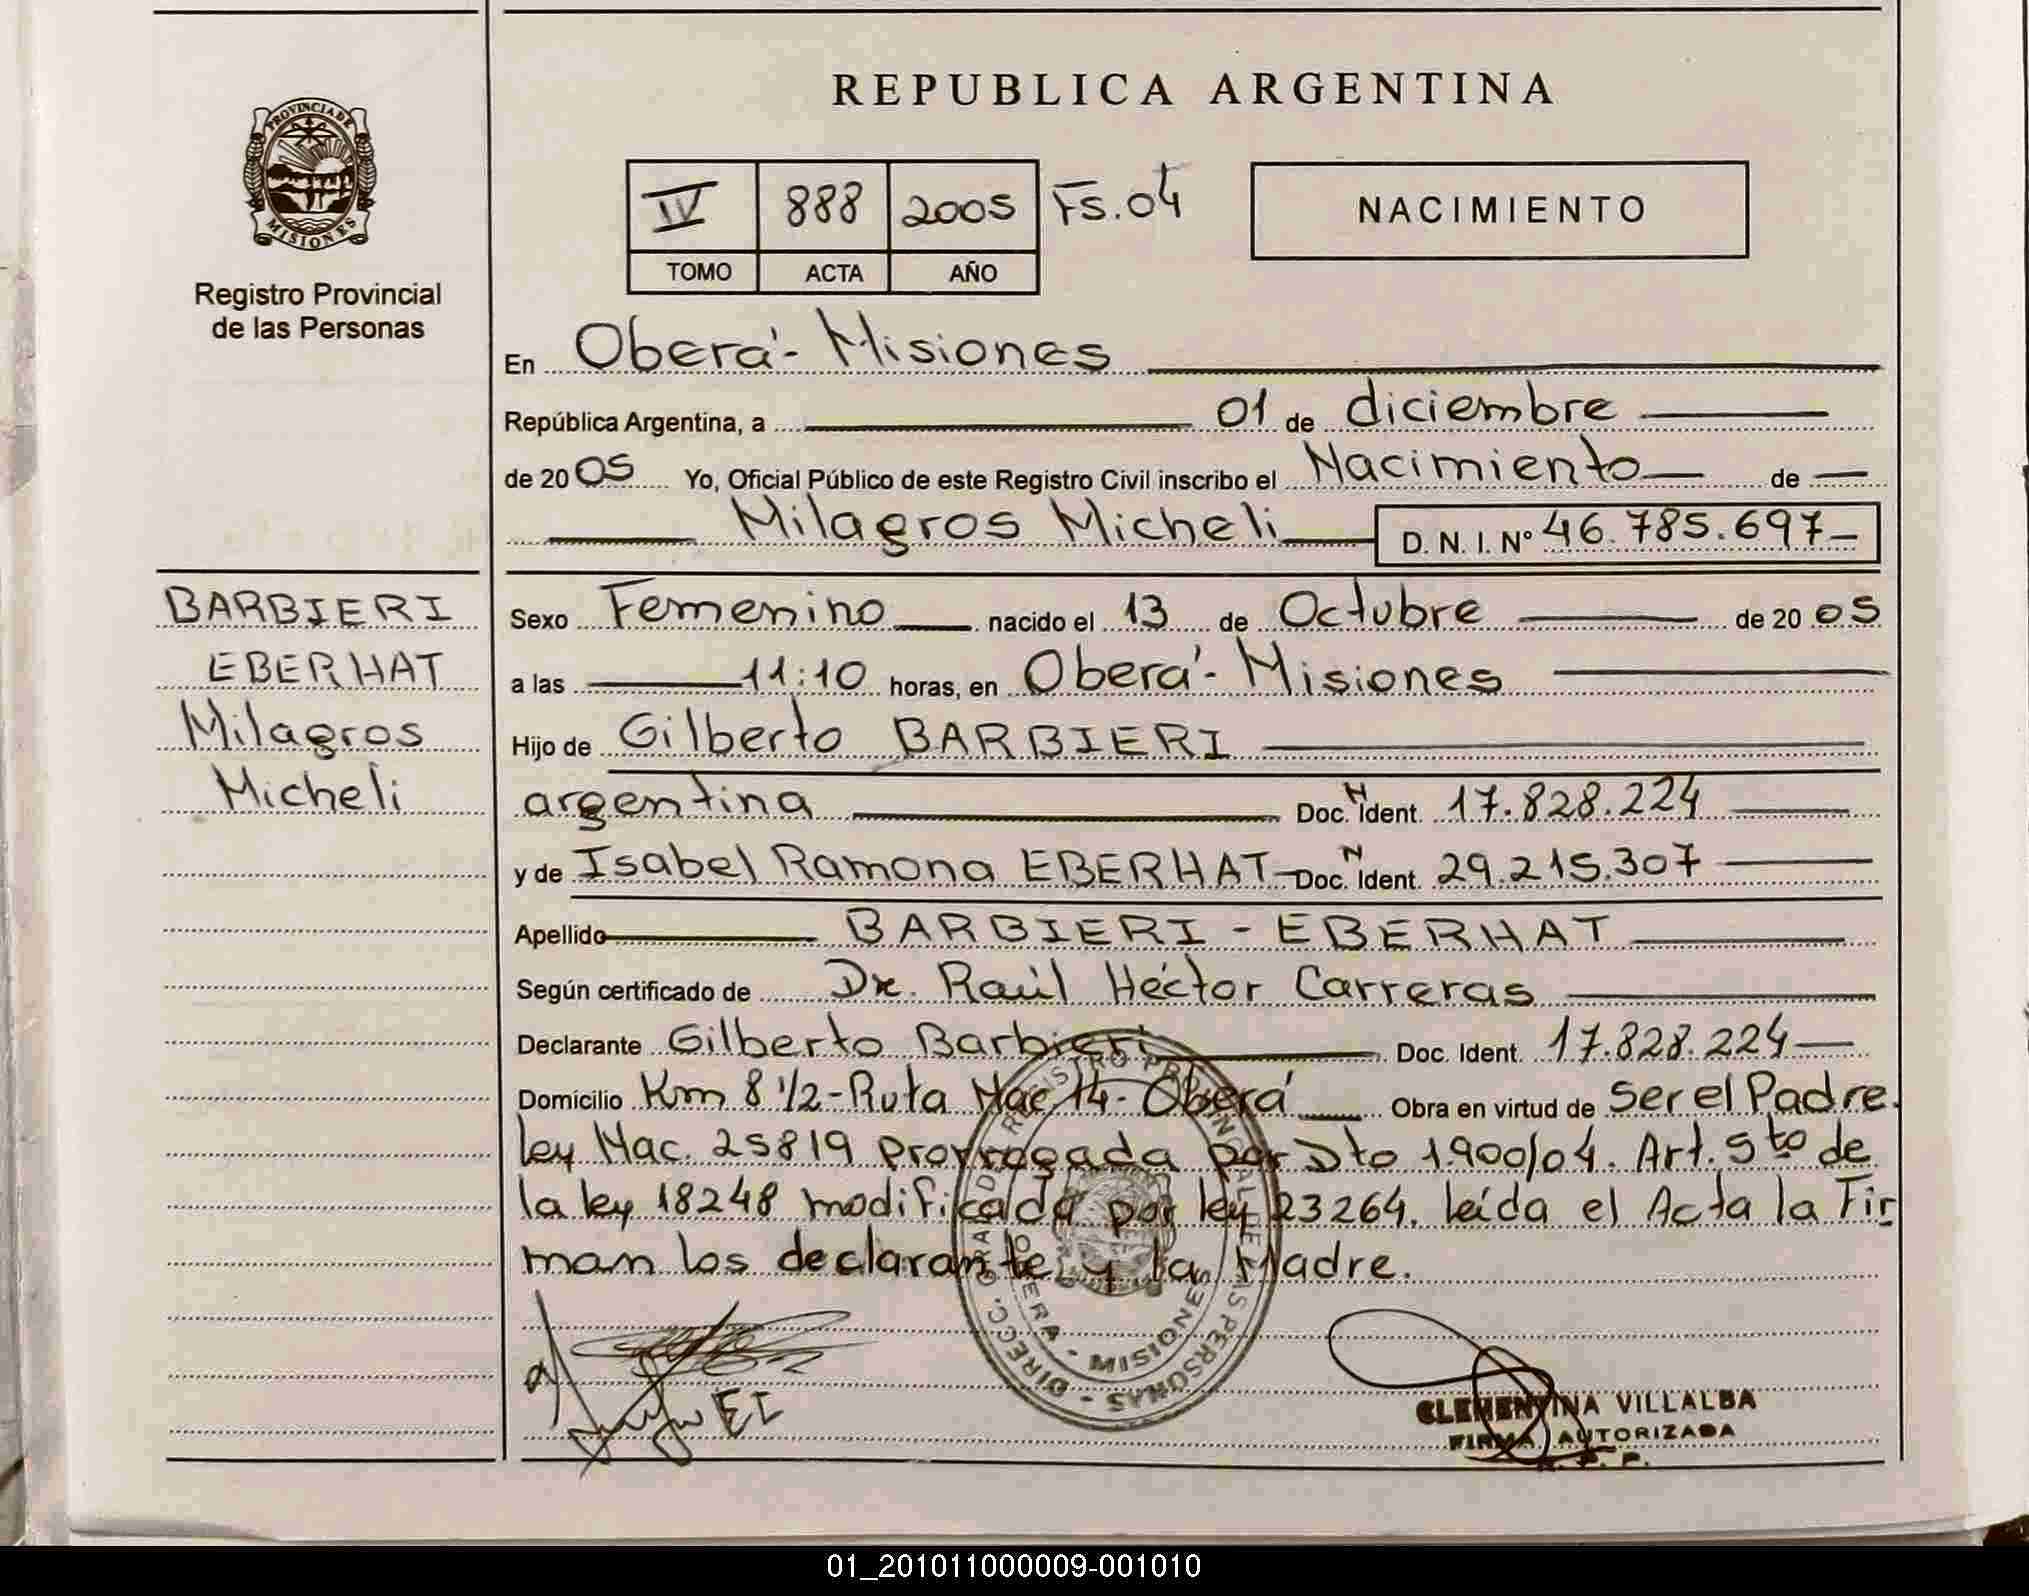 REPUBLICA ARGENTINA
PROVINCIA DE
MISIONES
Registro Provincial
de las Personas
IV 888 2005 Fs. 04
TOMO ACTA AÑO
NACIMIENTO
En Oberá - Misiones
República Argentina, a 01 de diciembre
de 2005 Yo, Oficial Público de este Registro Civil inscribo el Nacimiento de
Milagros Micheli D. N. I. N° 46.785.697
BARBIERI
EBERHAT
Milagros
Micheli
Sexo Femenino nacido el 13 de Octubre de 2005
a las 11:10 horas, en Oberá - Misiones
Hijo de Gilberto BARBIERI
argentina Doc. N Ident. 17.828.224
y de Isabel Ramona EBERHAT Doc. N Ident. 29.215.307
Apellido BARBIERI - EBERHAT
Según certificado de Dr. Raúl Héctor Carreras
Declarante Gilberto Barbieri Doc. Ident. 17.828.224
Domicilio Km 8 1/2 - Ruta Nac 14 - Oberá Obra en virtud de Ser el Padre.
ley Nac. 25819 prorrogada por Dto 1900/04. Art. 5to de
la ley 18248 modificada por ley 23264. leída el Acta la Fir
man los declarante y la Madre.
DIRECC. GRAL. DE REGISTRO PROVINCIAL DE LAS PERSONAS
OBERA - MISIONES
EI
CLEMENTINA VILLALBA
FIRMA AUTORIZADA
R. P. P.
01_201011000009-001010